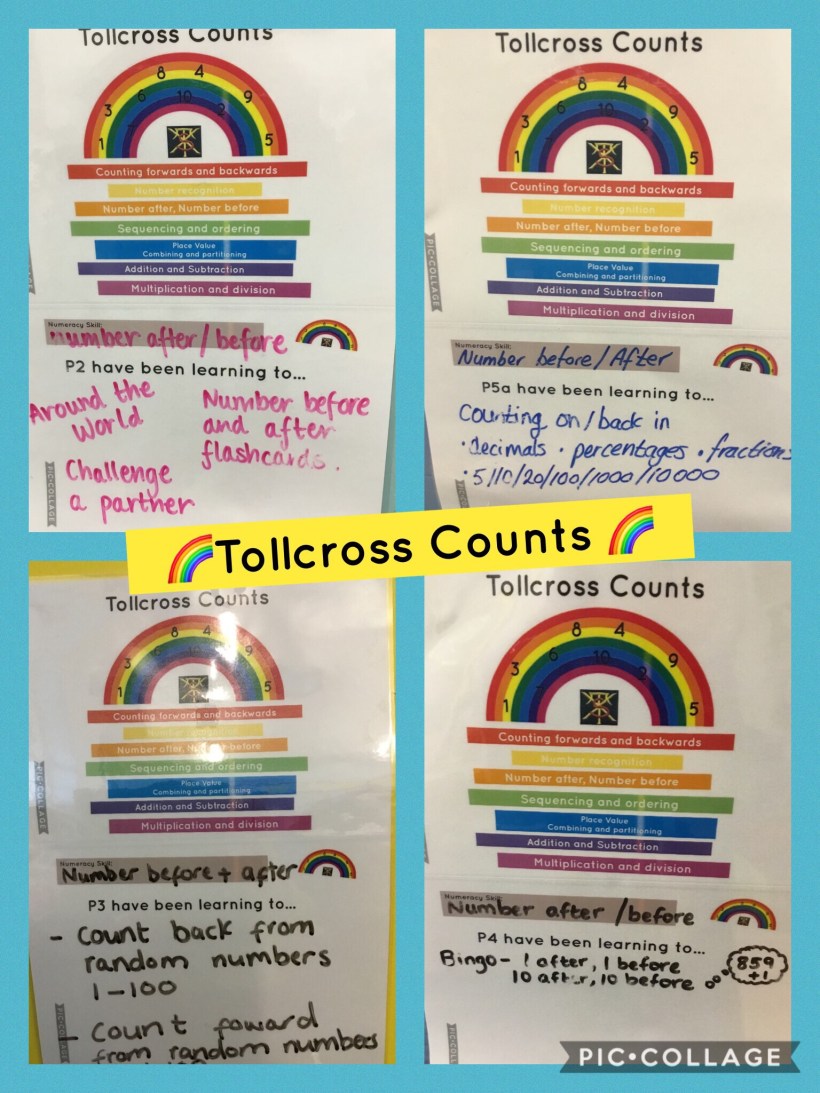 Tollcross Counts
8 4
3 6 10 9
1 5
Counting forwards and backwards
Number recognition
Number after, Number before
Sequencing and ordering
Place Value
Combining and partitioning
Addition and Subtraction
Multiplication and division
Numeracy Skill:
number after/before
P2 have been learning to...
Around the
World
Number before
and after
flashcards.
Challenge
a partner
PIC•COLLAGE
Tollcross Counts
8 4
3 6 10 9
1 5
Counting forwards and backwards
Number recognition
Number after, Number before
Sequencing and ordering
Place Value
Combining and partitioning
Addition and Subtraction
Multiplication and division
PIC•COLLAGE
Numeracy Skill:
Number before/After
P5a have been learning to...
Counting on/back in
•decimals •percentages •fractions
•5/10/20/100/1000/10000
Tollcross Counts
Tollcross Counts
8 4
3 6 10 9
1 5
Counting forwards and backwards
Number after, Number before
Sequencing and ordering
Place Value
Combining and partitioning
Addition and Subtraction
Multiplication and division
PIC•COLLAGE
Numeracy Skill:
Number before + after
P3 have been learning to...
- Count back from
random numbers
1-100
- Count foward
from random numbers
Tollcross Counts
8 4
3 6 10 9
1 5
Counting forwards and backwards
Number recognition
Number after, Number before
Sequencing and ordering
Place Value
Combining and partitioning
Addition and Subtraction
Multiplication and division
Numeracy Skill:
Number after/before
P4 have been learning to...
Bingo- 1 after, 1 before
10 after, 10 before
859
+1
PIC•COLLAGE